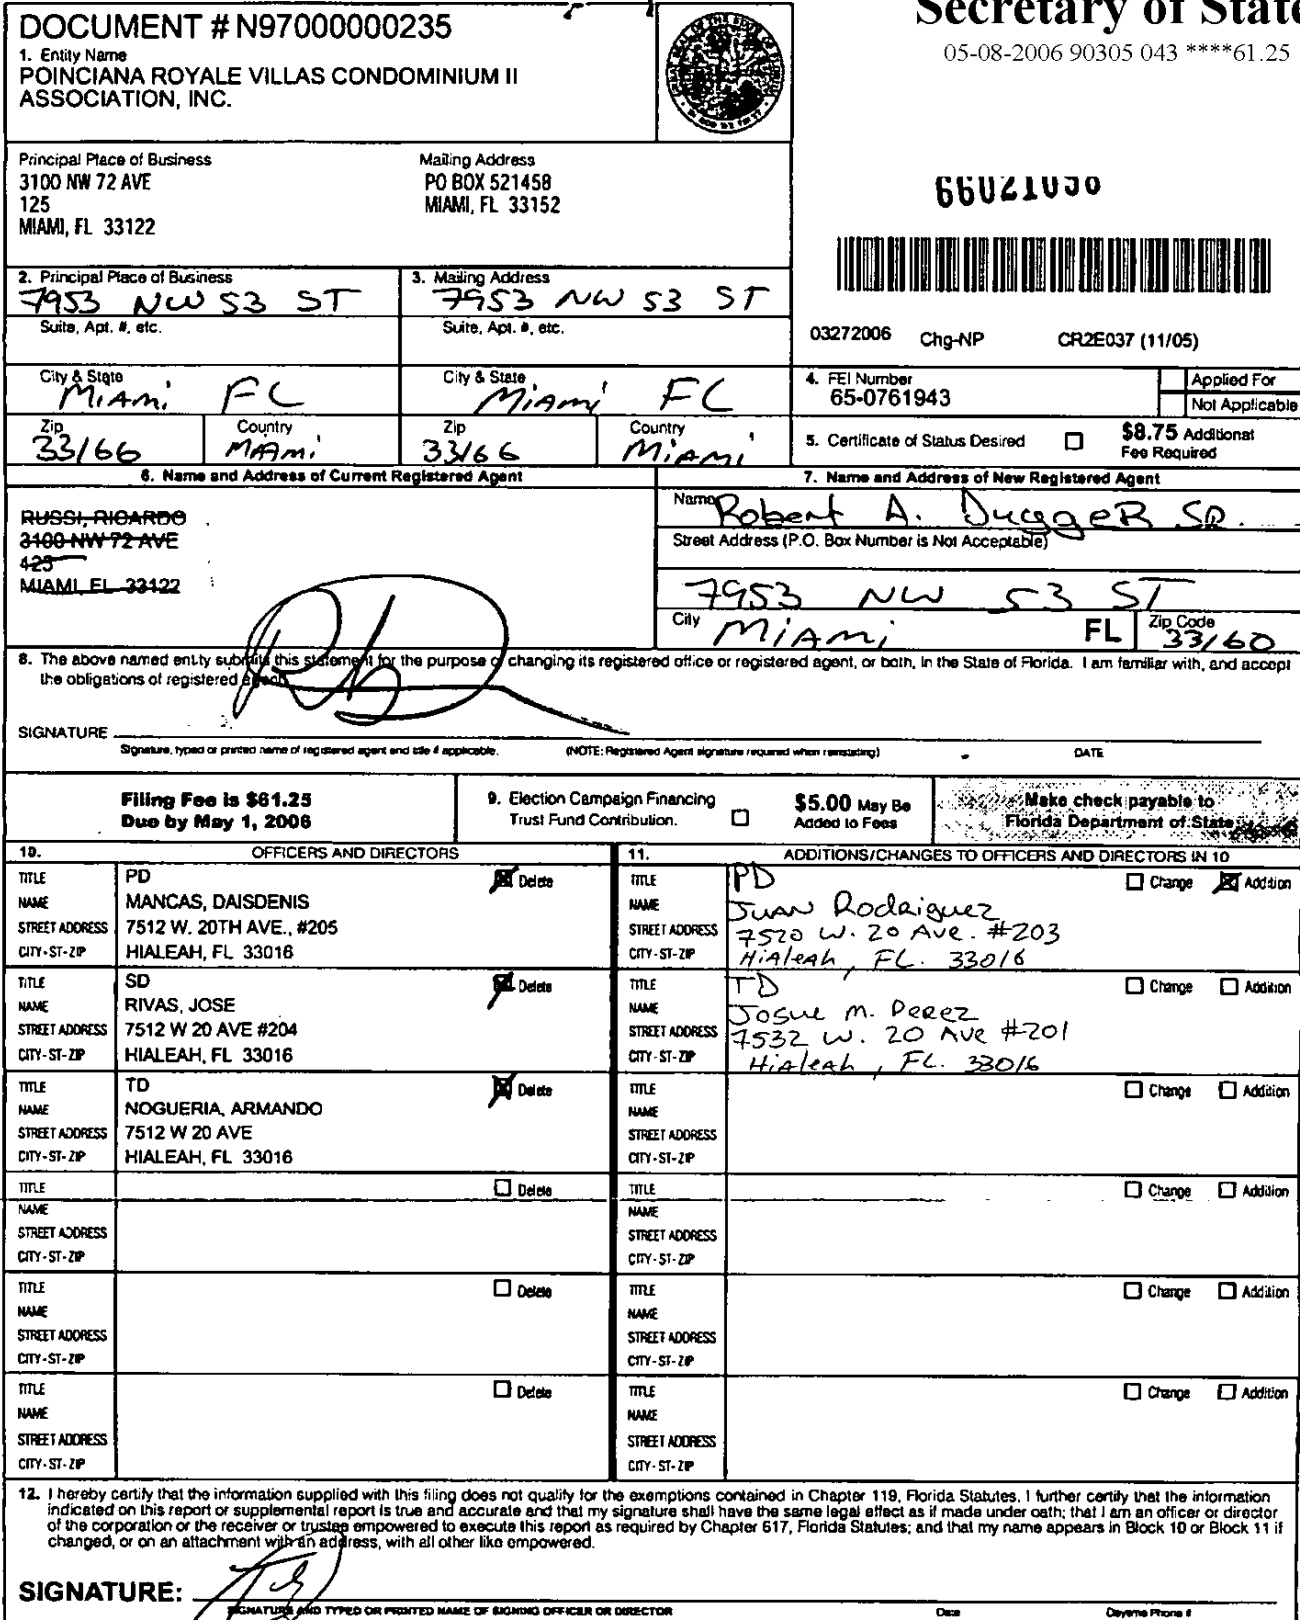 Secretary of State
DOCUMENT # N97000000235
05-08-2006 90305 043 ****61.25
1. Entity Name
POINCIANA ROYALE VILLAS CONDOMINIUM II
ASSOCIATION, INC.
Principal Place of Business
3100 NW 72 AVE
125
MIAMI, FL 33122
Mailing Address
PO BOX 521458
MIAMI, FL 33152
2. Principal Place of Business
7953 NW 53 ST
3. Mailing Address
7953 NW 53 ST
Suite, Apt. #, etc.
Suite, Apt. #, etc.
03272006 Chg-NP CR2E037 (11/05)
City & State
Miami FL
City & State
Miami FL
4. FEI Number
65-0761943
Applied For
Not Applicable
Zip
33166
Country
Miami
Zip
33166
Country
Miami
5. Certificate of Status Desired
$8.75 Additional
Fee Required
6. Name and Address of Current Registered Agent
RUSSI, RICARDO
3100 NW 72 AVE
425
MIAMI, FL 33122
7. Name and Address of New Registered Agent
Name Robert A. Dugger SR.
Street Address (P.O. Box Number is Not Acceptable)
7953 NW 53 ST
City Miami FL Zip Code 33160
8. The above named entity submits this statement for the purpose of changing its registered office or registered agent, or both, in the State of Florida. I am familiar with, and accept
the obligations of registered agent.
SIGNATURE
Signature, typed or printed name of registered agent and title if applicable. (NOTE: Registered Agent signature required when reinstating) DATE
Filing Fee is $61.25
Due by May 1, 2006
9. Election Campaign Financing
Trust Fund Contribution.
$5.00 May Be
Added to Fees
Make check payable to
Florida Department of State
10. OFFICERS AND DIRECTORS
TITLE PD Delete
NAME MANCAS, DAISDENIS
STREET ADDRESS 7512 W. 20TH AVE., #205
CITY-ST-ZIP HIALEAH, FL 33016
TITLE SD Delete
NAME RIVAS, JOSE
STREET ADDRESS 7512 W 20 AVE #204
CITY-ST-ZIP HIALEAH, FL 33016
TITLE TD Delete
NAME NOGUERIA, ARMANDO
STREET ADDRESS 7512 W 20 AVE
CITY-ST-ZIP HIALEAH, FL 33016
TITLE Delete
NAME
STREET ADDRESS
CITY-ST-ZIP
TITLE Delete
NAME
STREET ADDRESS
CITY-ST-ZIP
TITLE Delete
NAME
STREET ADDRESS
CITY-ST-ZIP
11. ADDITIONS/CHANGES TO OFFICERS AND DIRECTORS IN 10
TITLE PD Change Addition
NAME Juan Rodriguez
STREET ADDRESS 7520 W. 20 Ave. #203
CITY-ST-ZIP Hialeah, FL. 33016
TITLE TD Change Addition
NAME Josue M. Perez
STREET ADDRESS 7532 W. 20 Ave #201
CITY-ST-ZIP Hialeah, FL. 33016
TITLE Change Addition
NAME
STREET ADDRESS
CITY-ST-ZIP
TITLE Change Addition
NAME
STREET ADDRESS
CITY-ST-ZIP
TITLE Change Addition
NAME
STREET ADDRESS
CITY-ST-ZIP
TITLE Change Addition
NAME
STREET ADDRESS
CITY-ST-ZIP
12. I hereby certify that the information supplied with this filing does not qualify for the exemptions contained in Chapter 119, Florida Statutes. I further certify that the information
indicated on this report or supplemental report is true and accurate and that my signature shall have the same legal effect as if made under oath; that I am an officer or director
of the corporation or the receiver or trustee empowered to execute this report as required by Chapter 617, Florida Statutes; and that my name appears in Block 10 or Block 11 if
changed, or on an attachment with an address, with all other like empowered.
SIGNATURE:
SIGNATURE AND TYPED OR PRINTED NAME OF SIGNING OFFICER OR DIRECTOR Date Daytime Phone #